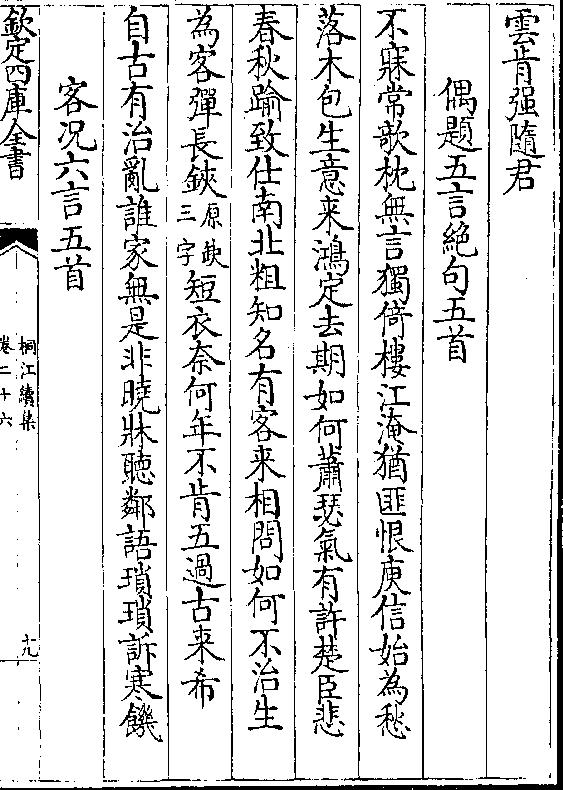 雲肯强隨君
偶題五言絶句五首
不寐常歌枕無言獨倚樓江淹猶匪恨庾信始為愁
落木包生意来鴻定去期如何蕭瑟氣有許楚臣悲
春秋踰致仕南北粗知名有客来相問如何不治生
為客彈長鋏原缺三字短衣奈何年不肯五過古来希
自古有治亂誰家無是非曉牀聴鄰語瑣瑣訴寒饑
客况六言五首
欽定四庫全書
桐江續集
卷二十六
十九